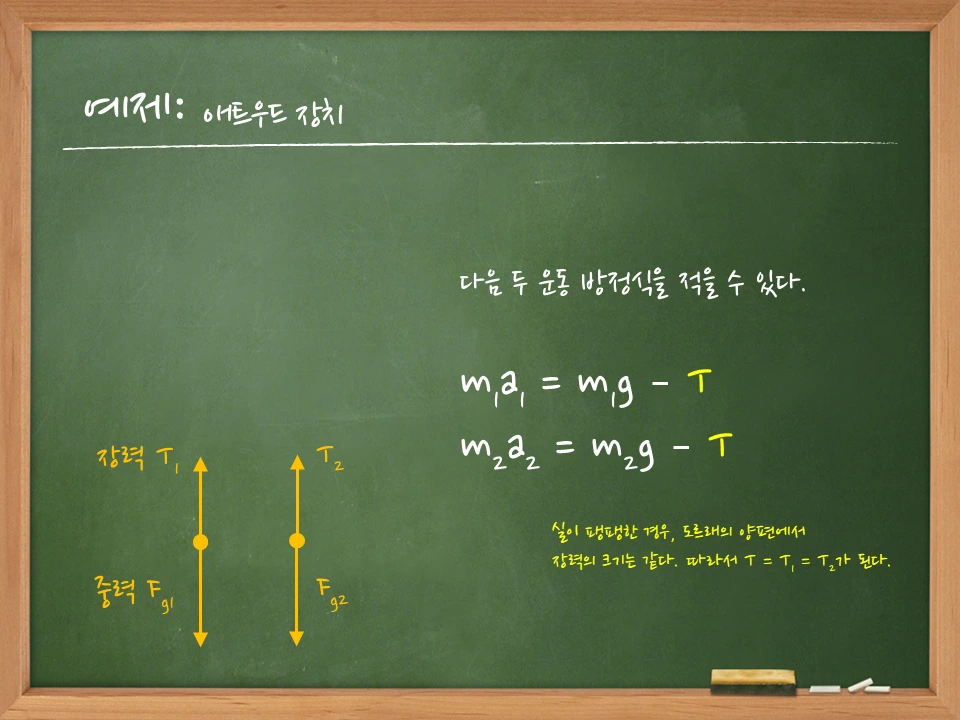 예제: 애트우드 장치
다음 두 운동 방정식을 적을 수 있다.
m₁a₁ = m₁g - T
m₂a₂ = m₂g - T
장력 T₁
T₂
중력 Fg1
Fg2
실이 팽팽한 경우, 도르래의 양편에서
장력의 크기는 같다. 따라서 T = T₁ = T₂가 된다.